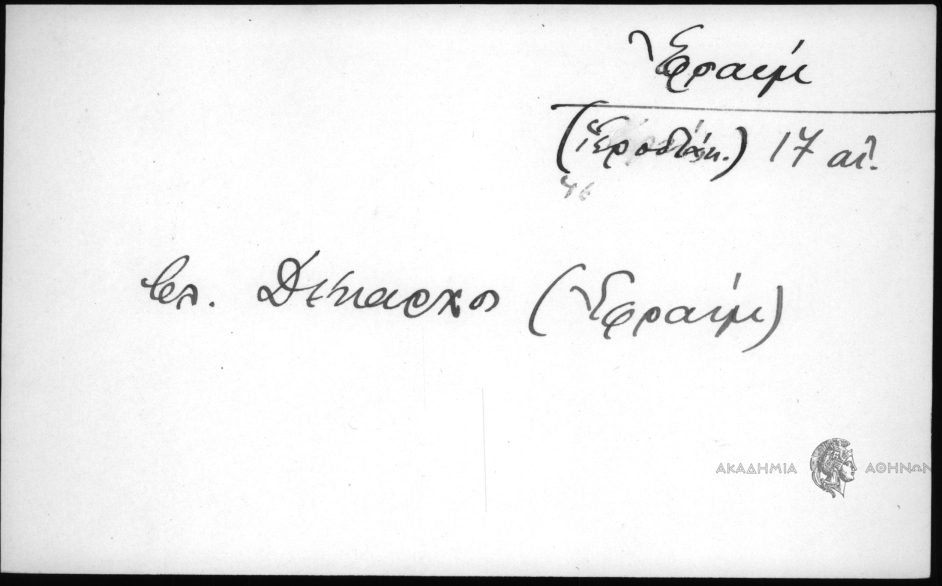 Ἐφραίμ
(Ἱεροδιάκ.) 17 αἰ.
46
βλ. Δέκαρχο (Ἐφραίμ)
ΑΚΑΔΗΜΙΑ ΑΘΗΝΩΝ